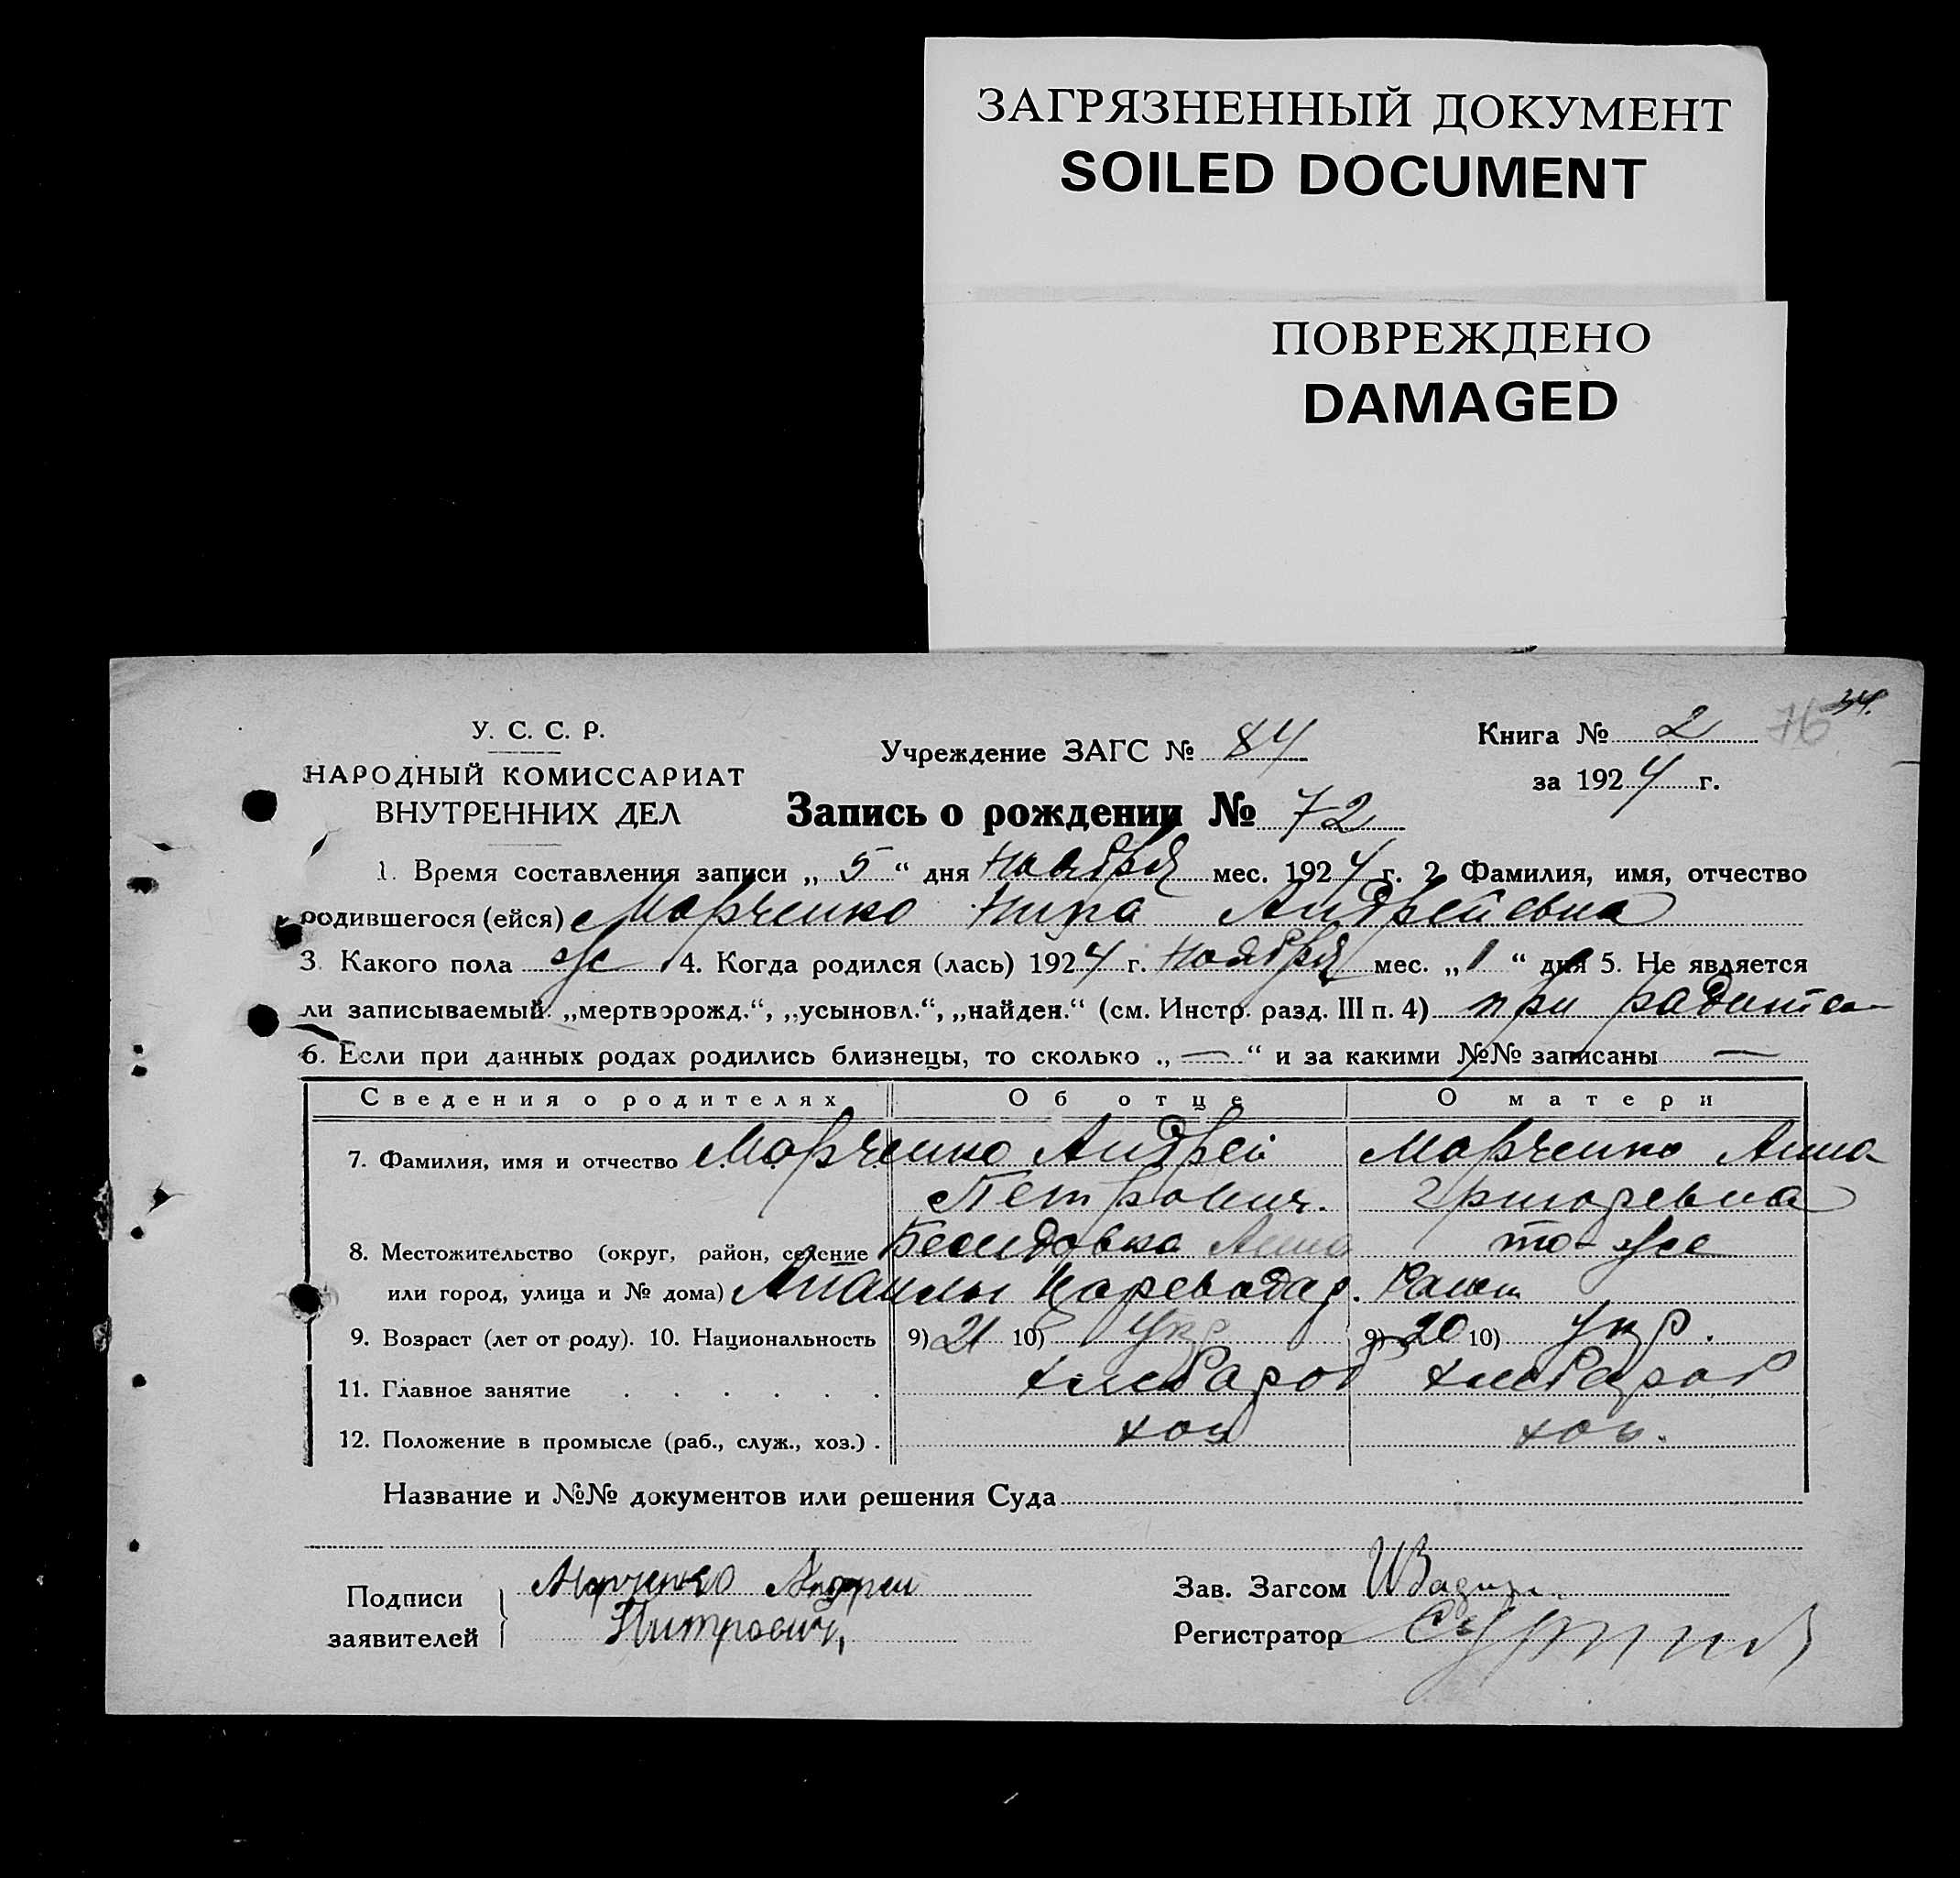 ЗАГРЯЗНЕННЫЙ ДОКУМЕНТ
SOILED DOCUMENT
ПОВРЕЖДЕНО
DAMAGED
34.
76
У. С. С. Р.
НАРОДНЫЙ КОМИССАРИАТ
ВНУТРЕННИХ ДЕЛ
Учреждение ЗАГС № 84
Книга № 2
за 1924 г.
Запись о рождении № 72
1. Время составления записи „ 5 “ дня ноября мес. 1924 г. 2 Фамилия, имя, отчество
родившегося (ейся) Марченко Нина Андреевна
3. Какого пола ж 4. Когда родился (лась) 1924 г. ноября мес. „ 1 “ дня 5. Не является
ли записываемый: „мертворожд.“, „усыновл.“, „найден.“ (см. Инстр. разд. III п. 4) при
6. Если при данных родах родились близнецы, то сколько „ — “ и за какими №№ записаны —
Сведения о родителях Об отце О матери
7. Фамилия, имя и отчество Марченко Андрей Марченко Анна
Петрович. Григоревна
8. Местожительство (округ, район, селение то-же
или город, улица и № дома)
9. Возраст (лет от роду). 10. Национальность 9) 21 10) Укр 9) 20 10) Укр.
11. Главное занятие хлебароб хлебароб
12. Положение в промысле (раб., служ., хоз.) . хоз хоз.
Название и №№ документов или решения Суда
Подписи
заявителей
Марченко Андреи
Питрович,
Зав. Загсом
Регистратор